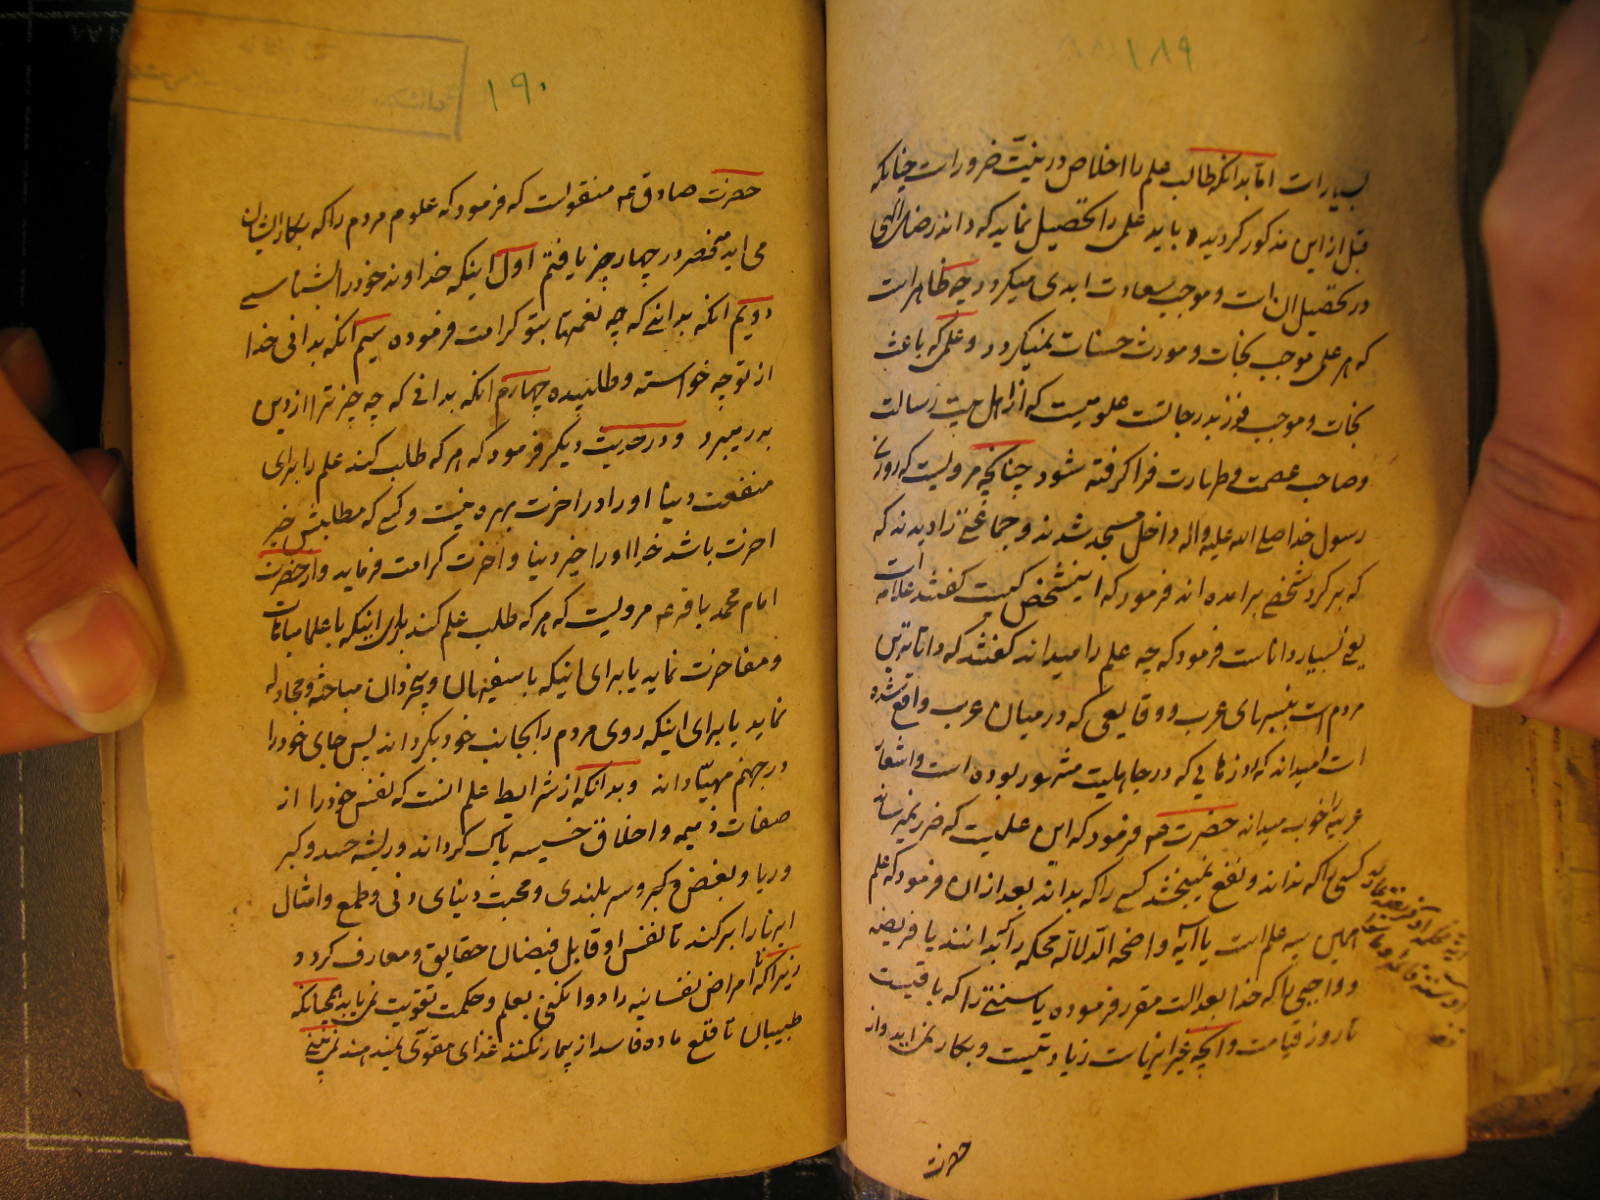 ۱۸۹
بسیار است اما بدانکه طالب علم را اخلاص در نیت ضرور است چنانکه
قبل از این مذکور گردید باید علمی را تحصیل نماید که داند رضای الهی
در تحصیل ان است و موجب سعادت ابدی میگردد چه ظاهر است
که هر علمی موجب نجات و مورث حسنات نمیگردد و علمی که باعث
نجات و موجب فوز بدرجاتست علومیست که از اهل بیت رسالت
و صاحب عصمت و طهارت فرا گرفته شود چنانچه مرویست که روزی
رسول خدا صلی الله علیه واله داخل مسجد شدند و جماعتی را دیدند که
که بر گرد شخصی برامده اند فرمود که اینشخص کیست گفتند علامه است
یعنی بسیار داناست فرمود که چه علم را میداند گفتند که داناترین
مردم است بنسبهای عرب و وقایعی که در میان عرب واقع شده
است میداند که از زمانی که در جاهلیت مشهور بوده است و اشعار
عربیرا خوب میداند حضرت فرمود که این علمیست که ضرر نمیرساند
کسی را که نداند و نفع نمیبخشد کسی را که بداند بعد از ان فرمود که علم
همین سه علم است یا آیه واضحه الدلاله محکمه را بدانند یا فریضه
و واجبی را که خدا بعدالت مقرر فرموده یا سنتی را که باقیست
تا روز قیامت و آنچه غیر اینهاست زیادتیست و بکار نمی اید و از
حضرت
۱۹۰
حضرت صادق ع منقولست که فرمود که علوم مردم را که بکار ایشان
می اید منحصر در چهار چیز یافتم اول اینکه خداوند خود را بشناسی
دویم انکه بدانی که چه نعمتها بتو کرامت فرموده سیم انکه بدانی خدا
از تو چه خواسته و طلبیده چهارم انکه بدانی که چه چیز ترا از دین
بدر میبرد و در حدیث دیگر فرمود که هر که طلب کند علم را برای
منفعت دنیا او را در اخرت بهره نیست و کسی که مطلبش خیر
اخرت باشد خدا او را خیر دنیا و اخرت کرامت فرماید و از حضرت
امام محمد باقر ع مرویست که هر که طلب علم کند برای اینکه با علما مباهات
و مفاخرت نماید یا برای اینکه با سفیهان و بیخردان مباحثه و مجادله
نماید یا برای اینکه روی مردم را بجانب خود بگرداند پس جای خود را
در جهنم مهیا داند و بدانکه از شرایط علم انست که نفس خود را از
صفات ذمیمه و اخلاق خسیسه پاک گرداند و ریشه حسد و کبر
و ریا و بغض و کبر و سربلندی و محبت دنیای دنی و طمع و امثال
اینها را برکند تا نفس او قابل فیضان حقایق و معارف گردد
زیرا که تا امراض نفسانیه را دوا نکنی بعلم و حکمت تقویت نمی یابد همچنانکه
طبیبان تا قلع ماده فاسد از بیمار نکنند غذای مقوی نمیدهند